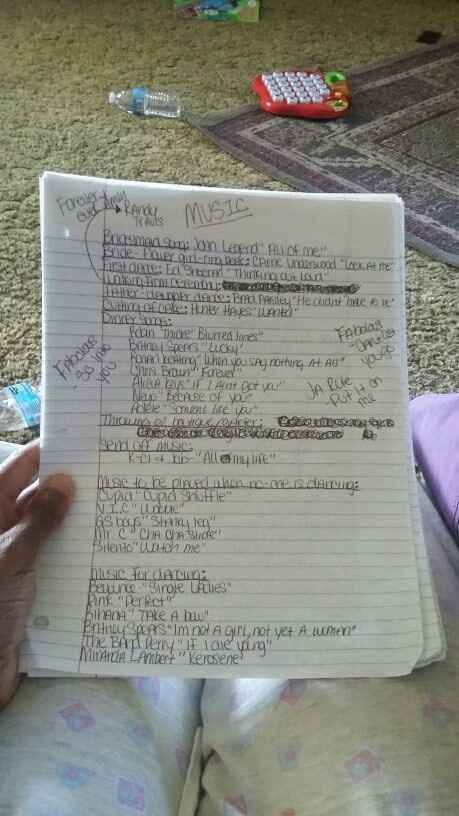 MUSIC
Forever & ever Amen
Randy Travis
Bridesmaid song: John Legend "All of me"
Bride- flower girl-ring : Carrie Underwood "Look At me"
First dance: Ed Sheeran "Thinking out Loud"
Walking from ceremony:
Father-daughter dance: Brad Paisley "He didnt have to be"
Cutting of cake: Hunter Hayes "Wanted"
Dinner songs:
Robin Thicke "Blurred lines"
Britney Spears "Lucky"
Ronan Keating "When you say nothing At All"
Chris Brown "Forever"
Alicia Keys "If I Aint Got you"
Neyo "Because of you"
Adele "someone like you"
Fabolous
-So into
you
Fabolous
you go
JA Rule
Put it on
me
Throwing of :
Send off music:
K-Ci & Jojo- "All my life"
Music to be played when no-one is dancing:
Cupid "Cupid Shuffle"
V.I.C "Wobble"
GS boys "Stanky leg"
Mr. C "Cha Cha Slide"
Silento "Watch me"
Music for dancing:
Beyonce "Single Ladies"
Pink "Perfect"
Rihana "TAKE A bow"
Britney Spears "Im not A girl, not yet A woman"
The Band Perry "If I die young"
Miranda Lambert "Kerosene"